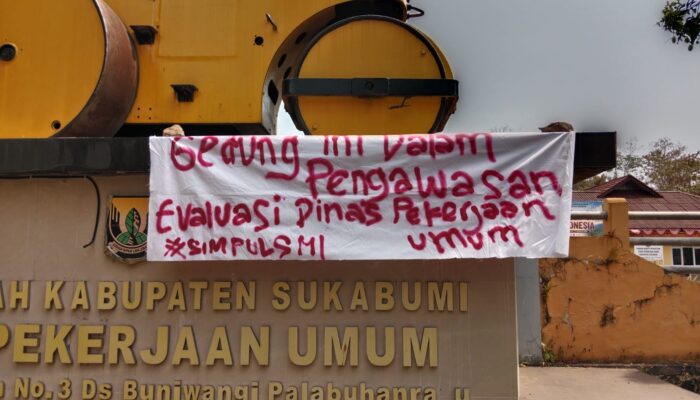 Gedung ini Dalam
Pengawasan
Evaluasi Dinas Pekerjaan
#SIMPULSMI umum
INDONESIA
AH KABUPATEN SUKABUMI
PEKERJAAN UMUM
No. 3 Ds Buniwangi Palabuhanra u